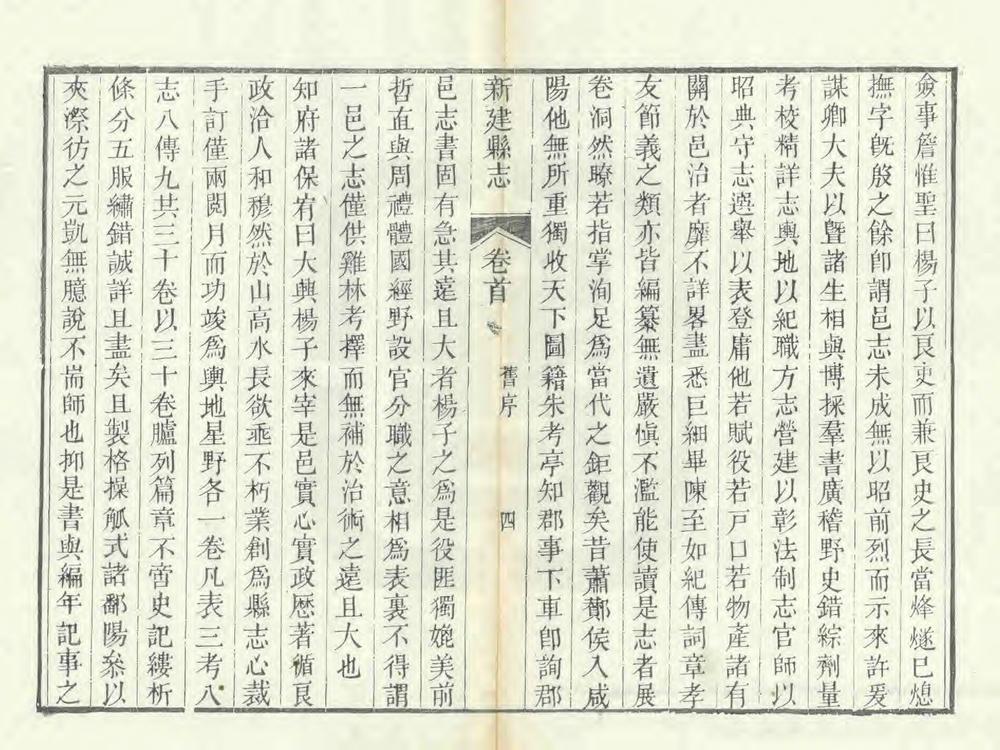 僉事詹惟聖曰楊子以良吏而兼良史之長當烽燧已熄
撫字旣殷之餘卽謂邑志未成無以昭前烈而示來許爰
謀卿大夫以曁諸生相與博採羣書廣稽野史錯綜劑量
考校精詳志輿地以紀職方志營建以彰法制志官師以
昭典守志選舉以表登庸他若賦役若戸口若物產諸有
關於邑治者靡不詳畧盡悉巨細畢陳至如紀傳詞章孝
友節義之類亦皆編纂無遺嚴愼不濫能使讀是志者展
卷洞然暸若指掌洵足為當代之鉅觀矣昔蕭酇侯入咸
陽他無所重獨收天下圖籍朱考亭知郡事下車卽詢郡
新建縣志 卷首 舊序 四
邑志書固有急其遠且大者楊子之為是役匪獨媲美前
哲直與周禮體國經野設官分職之意相為表裏不得謂
一邑之志僅供雞林考擇而無補於治術之遠且大也
知府諸保宥曰大輿楊子來宰是邑實心實政歷著循良
政洽人和穆然於山高水長欲垂不朽業創為縣志心裁
手訂僅兩閱月而功竣為輿地星野各一卷凡表三考八
志八傳九共三十卷以三十卷臚列篇章不啻史記縷析
條分五服繡錯誠詳且盡矣且製格操觚式諸鄱陽叅以
夾漈彷之元凱無臆說不耑師也抑是書與編年記事之